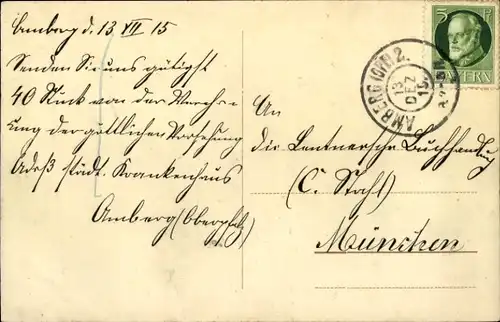 Amberg d. 13 XII 15
Senden Sie uns gütigst
40 Stück von der Verehr-
ung der göttlichen Vorsehung
Adreß städt. Krankenhaus
Amberg (Oberpfalz)
5 Pf
BAYERN
AMBERG (OPF) 2.
13
DEZ
An
die Lentnersche Buchhandlung
(C. Stahl)
München